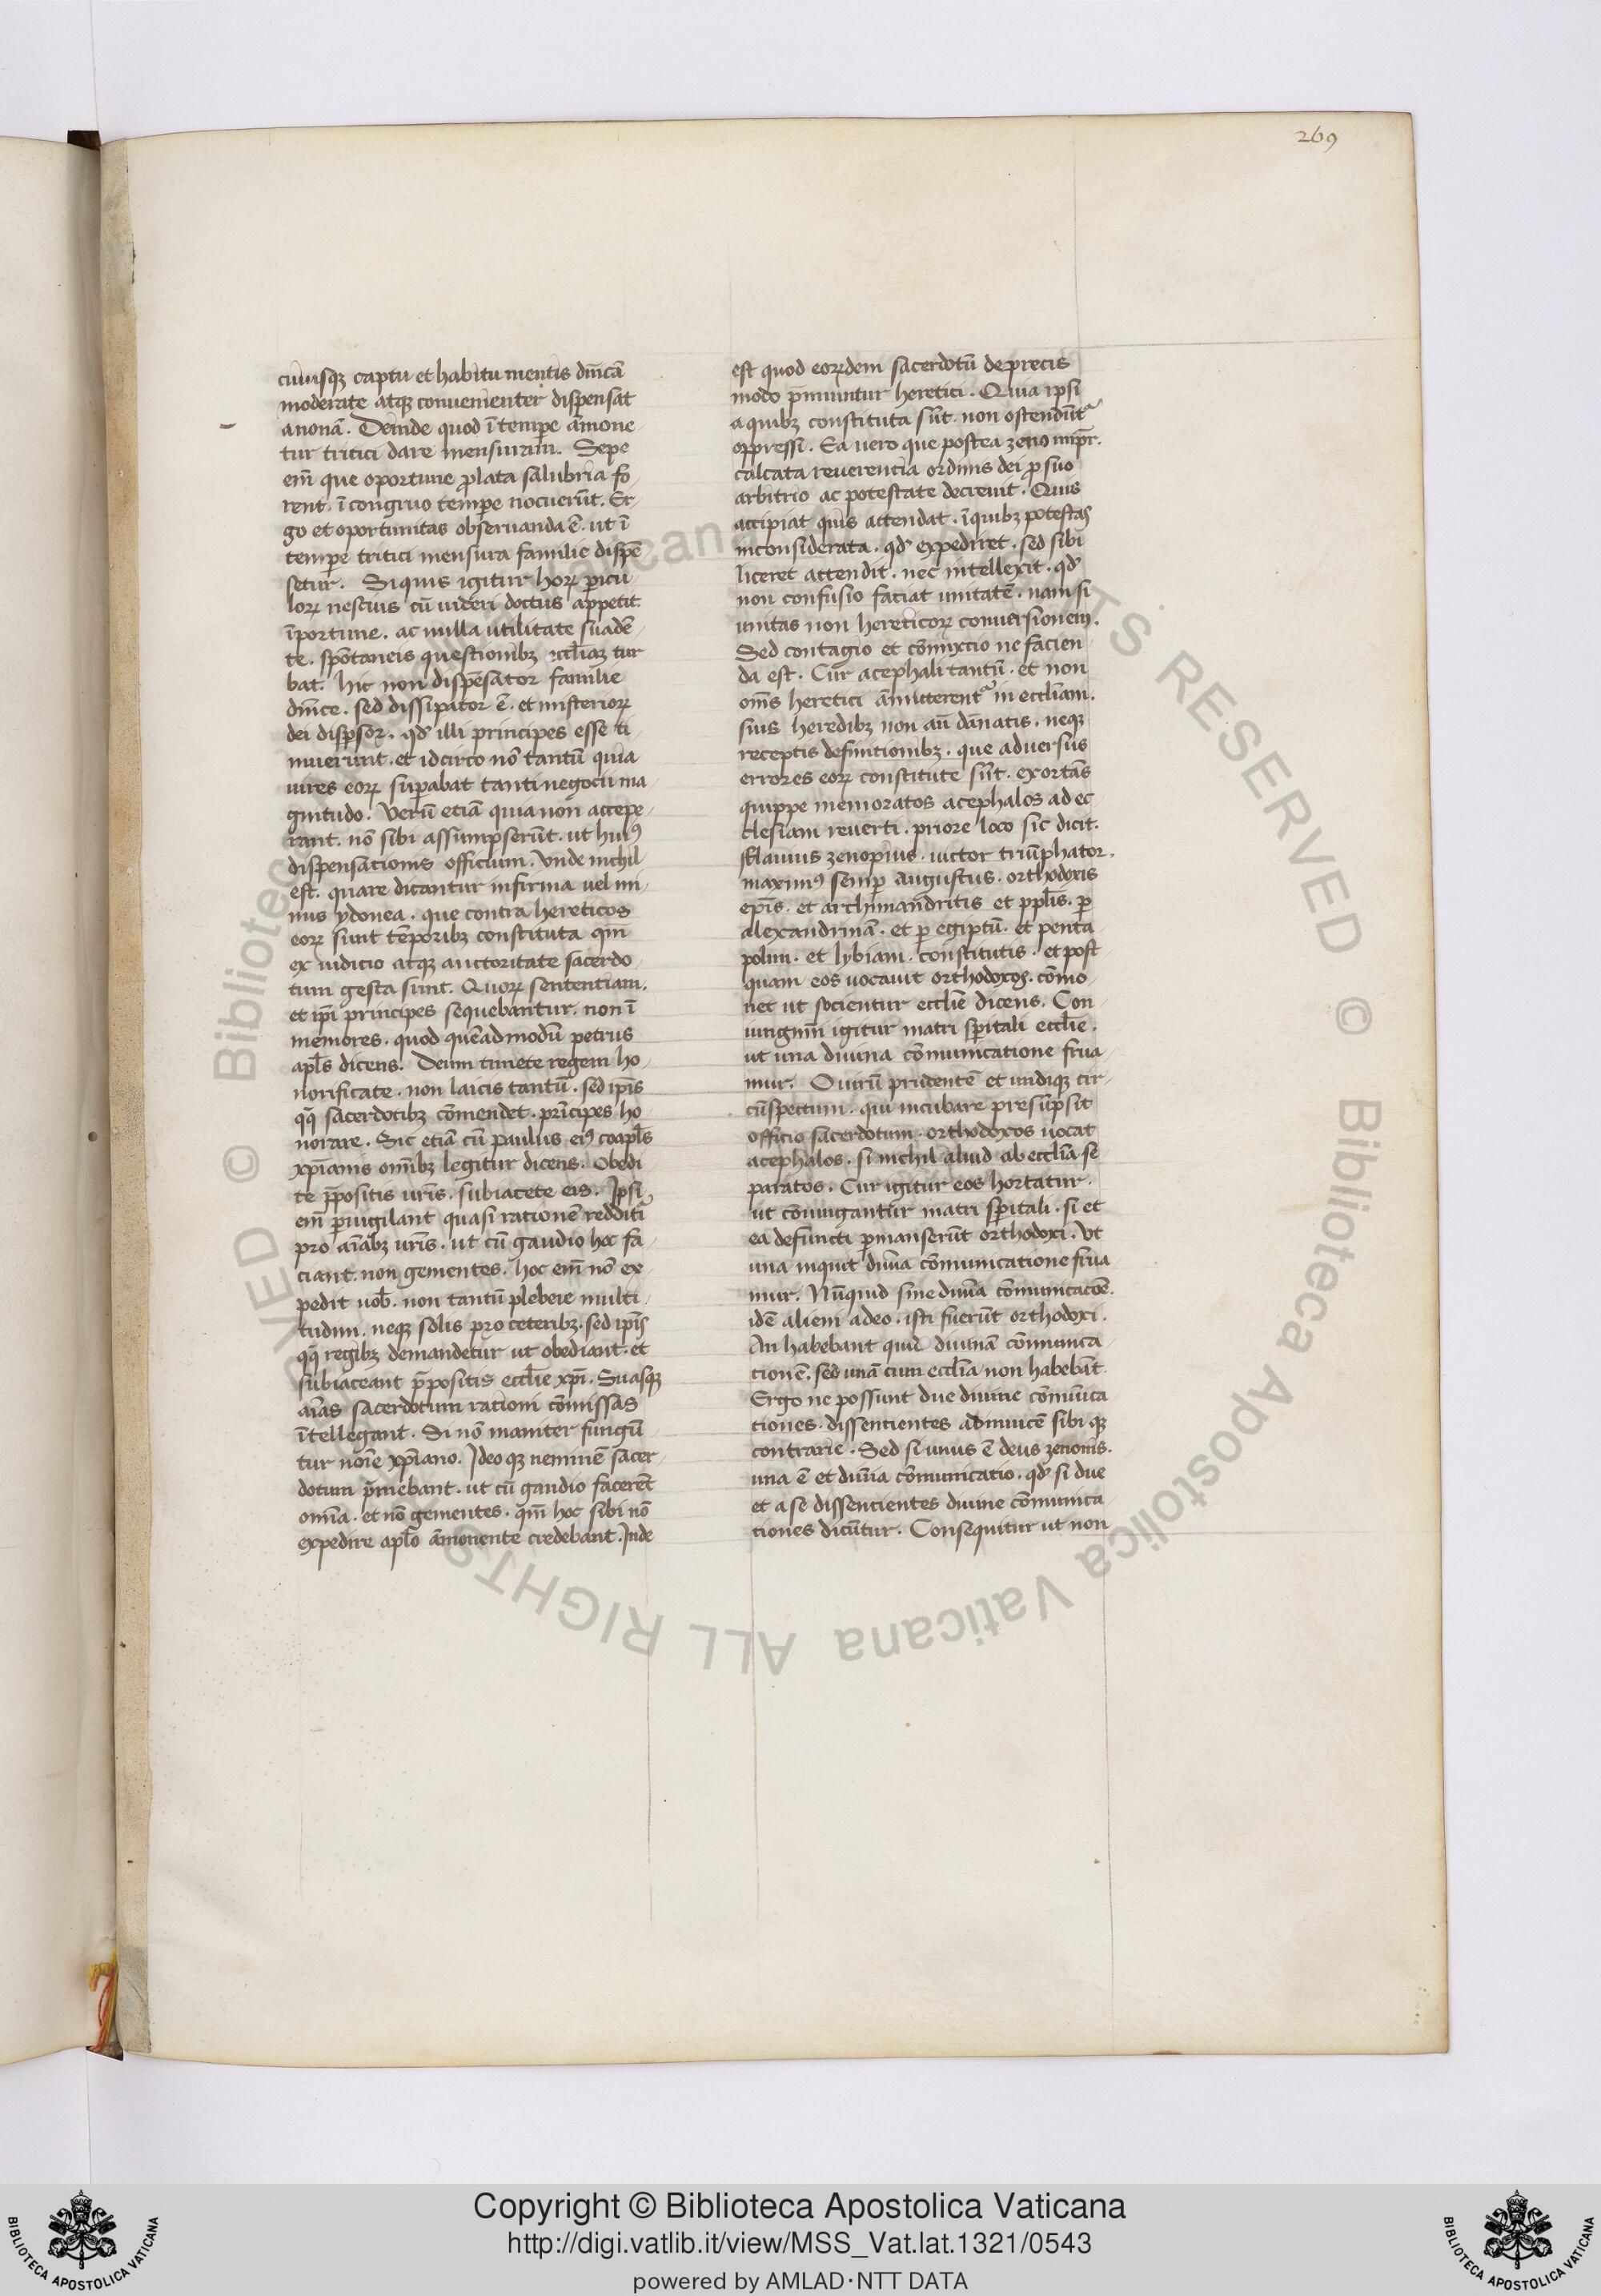 269
cuiusqꝫ captu et habitu mentis dn̄icā
moderate atqꝫ conuenienter dispensat
anonā. Deinde quod ī tempe āmone-
tur tritici dare mensuram. Sepe
em̄ que oportune ꝓlata salubria fo-
rent. ī congruo tempe nocuerūt. Er-
go et oportunitas obseruanda ē. ut ī
tempe tritici mensura familie dispē
setur. Si quis igitur horꝝ ꝑicu
lorꝝ nescius cū uideri doctus appetit.
īportune. ac nulla utilitate suadē-
te. spōtaneis questionibꝫ eccl̄iaꝫ tur
bat. hic non dispēsator familie
dn̄ice. sed dissipator ē. et misteriorꝝ
dei dispersor. qd̛ illi principes esse ti
muerunt. et idcirco nō tantū quia
uires eorꝝ suꝑabat tanti negocii ma
gnitudo. Verū etiā quia non accepe-
rant. nō sibi assumpserūt. ut huiꝰ
dispensationis officium. Vnde nichil
est. quare dicantur infirma uel mi-
nus ydonea. que contra hereticos
eorꝝ sunt tēporibꝫ constituta qm̄
ex iudicio atqꝫ auctoritate sacerdo
tum gesta sunt. Quorꝝ sententiam.
et ip̄i principes sequebantur. non ī
memores. quod quēadmodū petrus
apl̄s dicens. Deum timete regem ho-
norificate. non laicis tantū. sed ip̄is
qꝙ sacerdotibꝫ cōmendet. prīcipes ho
norare. Sic etiā cū paulus eiꝰ coapl̄s
xp̄ianis om̄ibꝫ legitur dicens. Obedi
te p̄positis ur̄is. subiacete eis. Ipsi
em̄ ꝑuigilant quasi rationē reddituri
pro aīabꝫ ur̄is. ut cū gaudio hoc fa
ciant. non gementes. hoc em̄ nō ex
pedit uob̄. non tantū plebeie multi
tudini. neqꝫ solis pro ceteribꝫ. sed ip̄is
qꝙ regibꝫ demandetur ut obediant. et
subiaceant p̄positis eccl̄ie xp̄i. Suasqꝫ
aīas sacerdotum rationi cōmissas
ītellegant. Si nō inaniter fungū
tur noīe xp̄iano. Ideo qꝫ neminē sacer-
dotum p̄mebant. ut cū gaudio facerēt
omīa. et nō gementes. qm̄ hoc sibi nō
expedire apl̄o āmonente credebant. Inde
est quod eorꝝdem sacerdotū deprecis
modo p̄muntur heretici. Quia ipsi
a quibꝫ constituta sūt. non ostendūt᷑
oppressi. Ea uero que postea zeno imꝑr.
calcata reuerentia ordinis dei ꝓ suo
arbitrio ac potestate decreuit. Quis
accipiat quis attendat. ī quibꝫ potestas
inconsiderata. qd̛ expediret. sed sibi
liceret attendit. nec intellexit. qd̛
non confusio faciat unitatē. nam si
unitas non hereticorꝝ conuersionem.
Sed contagio et cōmixtio ne facien-
da est. Cur acephali tantū. et non
om̄s heretici āmitterent᷑ in eccl̄iam.
suis heredibꝫ non aū dānatis. neqꝫ
receptis definitionibꝫ. que aduersus
errores eorꝝ constitute sūt. exortās
quippe memoratos acephalos ad ec
clesiam reuerti. priore loco sic dicit.
Flauius zenopius. uictor triūphator.
maximꝰ semꝑ augustus. orthodoxis
ep̄is. et archimandritis et ppl̄is. ꝑ
alexandrinā. et ꝑ egiptū. et penta
polim. et lybiam. constitutis. et post
quam eos uocauit orthodoxos. cōmo-
net ut socientur eccl̄ie dicens. Con
iungim̄ igitur matri sꝑitali eccl̄ie.
ut una diuina cōmunicatione frua-
mur. O uirū prudentē et undiqꝫ cir-
cūspectum. qui incubare presūpsit
officio sacerdotum. orthodoxos uocat
acephalos. si nichil aliud ab eccl̄ia se
paratos. Cur igitur eos hortatur.
ut cōiungantur matri sꝑitali. si et
ea defuncti ꝑmanserūt orthodoxi. Vt
una inquit diuīa cōmunicatione frua
mur. Nūquid sine diuīa cōmunicacōe.
idē alieni adeo. isti fuerūt orthodoxi.
An habebant quid diuinā cōmunica-
tionē. sed unā cum eccl̄ia non habebāt.
Ergo ne possunt due diuine cōmūica
tiones. dissentientes adinuicē sibi qꝫ
contrarie. Sed si unus ē deus zenonis.
una ē et diuīa cōmunicatio. qd̛ si due
et a se dissentientes diuine cōmunica
tiones dicūtur. Consequitur ut non
Copyright © Biblioteca Apostolica Vaticana
http://digi.vatlib.it/view/MSS_Vat.lat.1321/0543
powered by AMLAD·NTT DATA
BIBLIOTECA APOSTOLICA VATICANA
BIBLIOTECA APOSTOLICA VATICANA
© Biblioteca Apostolica Vaticana ALL RIGHTS RESERVED